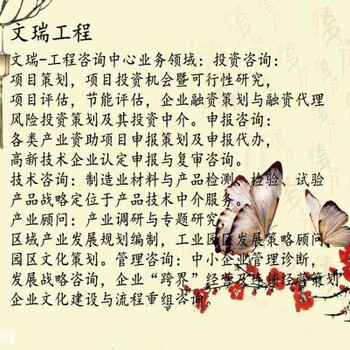 文瑞工程
文瑞-工程咨询中心业务领域：投资咨询：
项目策划，项目投资机会暨可行性研究，
项目评估，节能评估，企业融资策划与融资代理
风险投资策划及其投资中介。申报咨询：
各类产业资助项目申报策划及申报代办，
高新技术企业认定申报与复审咨询。
技术咨询：制造业材料与产品检测、检验、试验
产品战略定位于产品技术中介服务。
产业顾问：产业调研与专题研究，
区域产业发展规划编制，工业园区发展策略顾问
园区文化策划。管理咨询：中小企业管理诊断，
发展战略咨询，企业“跨界”经营及连锁经营策划
企业文化建设与流程重组咨询